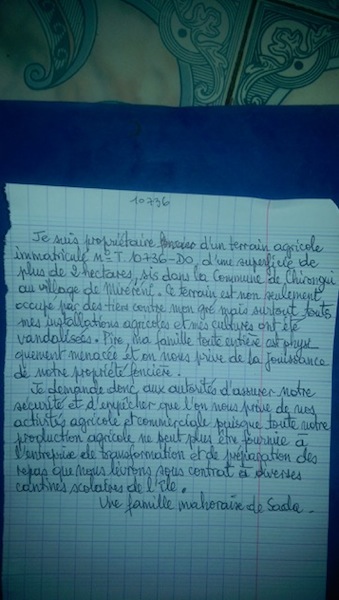 10736
Je suis propriétaire foncier d'un terrain agricole
immatriculé n° T 10736-DO, d'une superficie de
plus de 2 hectares, sis dans la Commune de Chirongui
au village de Miréréni. Ce terrain est non seulement
occupé par des tiers contre mon gré mais surtout toutes
mes installations agricoles et mes cultures ont été
vandalisées. Pire, ma famille toute entière est physi
quement menacée et on nous prive de la jouissance
de notre propriété foncière.
Je demande donc aux autorités d'assurer notre
sécurité et d'empêcher que l'on nous prive de nos
activités agricole et commerciale puisque toute notre
production agricole ne peut plus être fournie à
l'entreprise de transformation et de préparation des
repas que nous livrons sous contrat à diverses
cantines scolaires de l'île.
Une famille mahoraise de Sada.